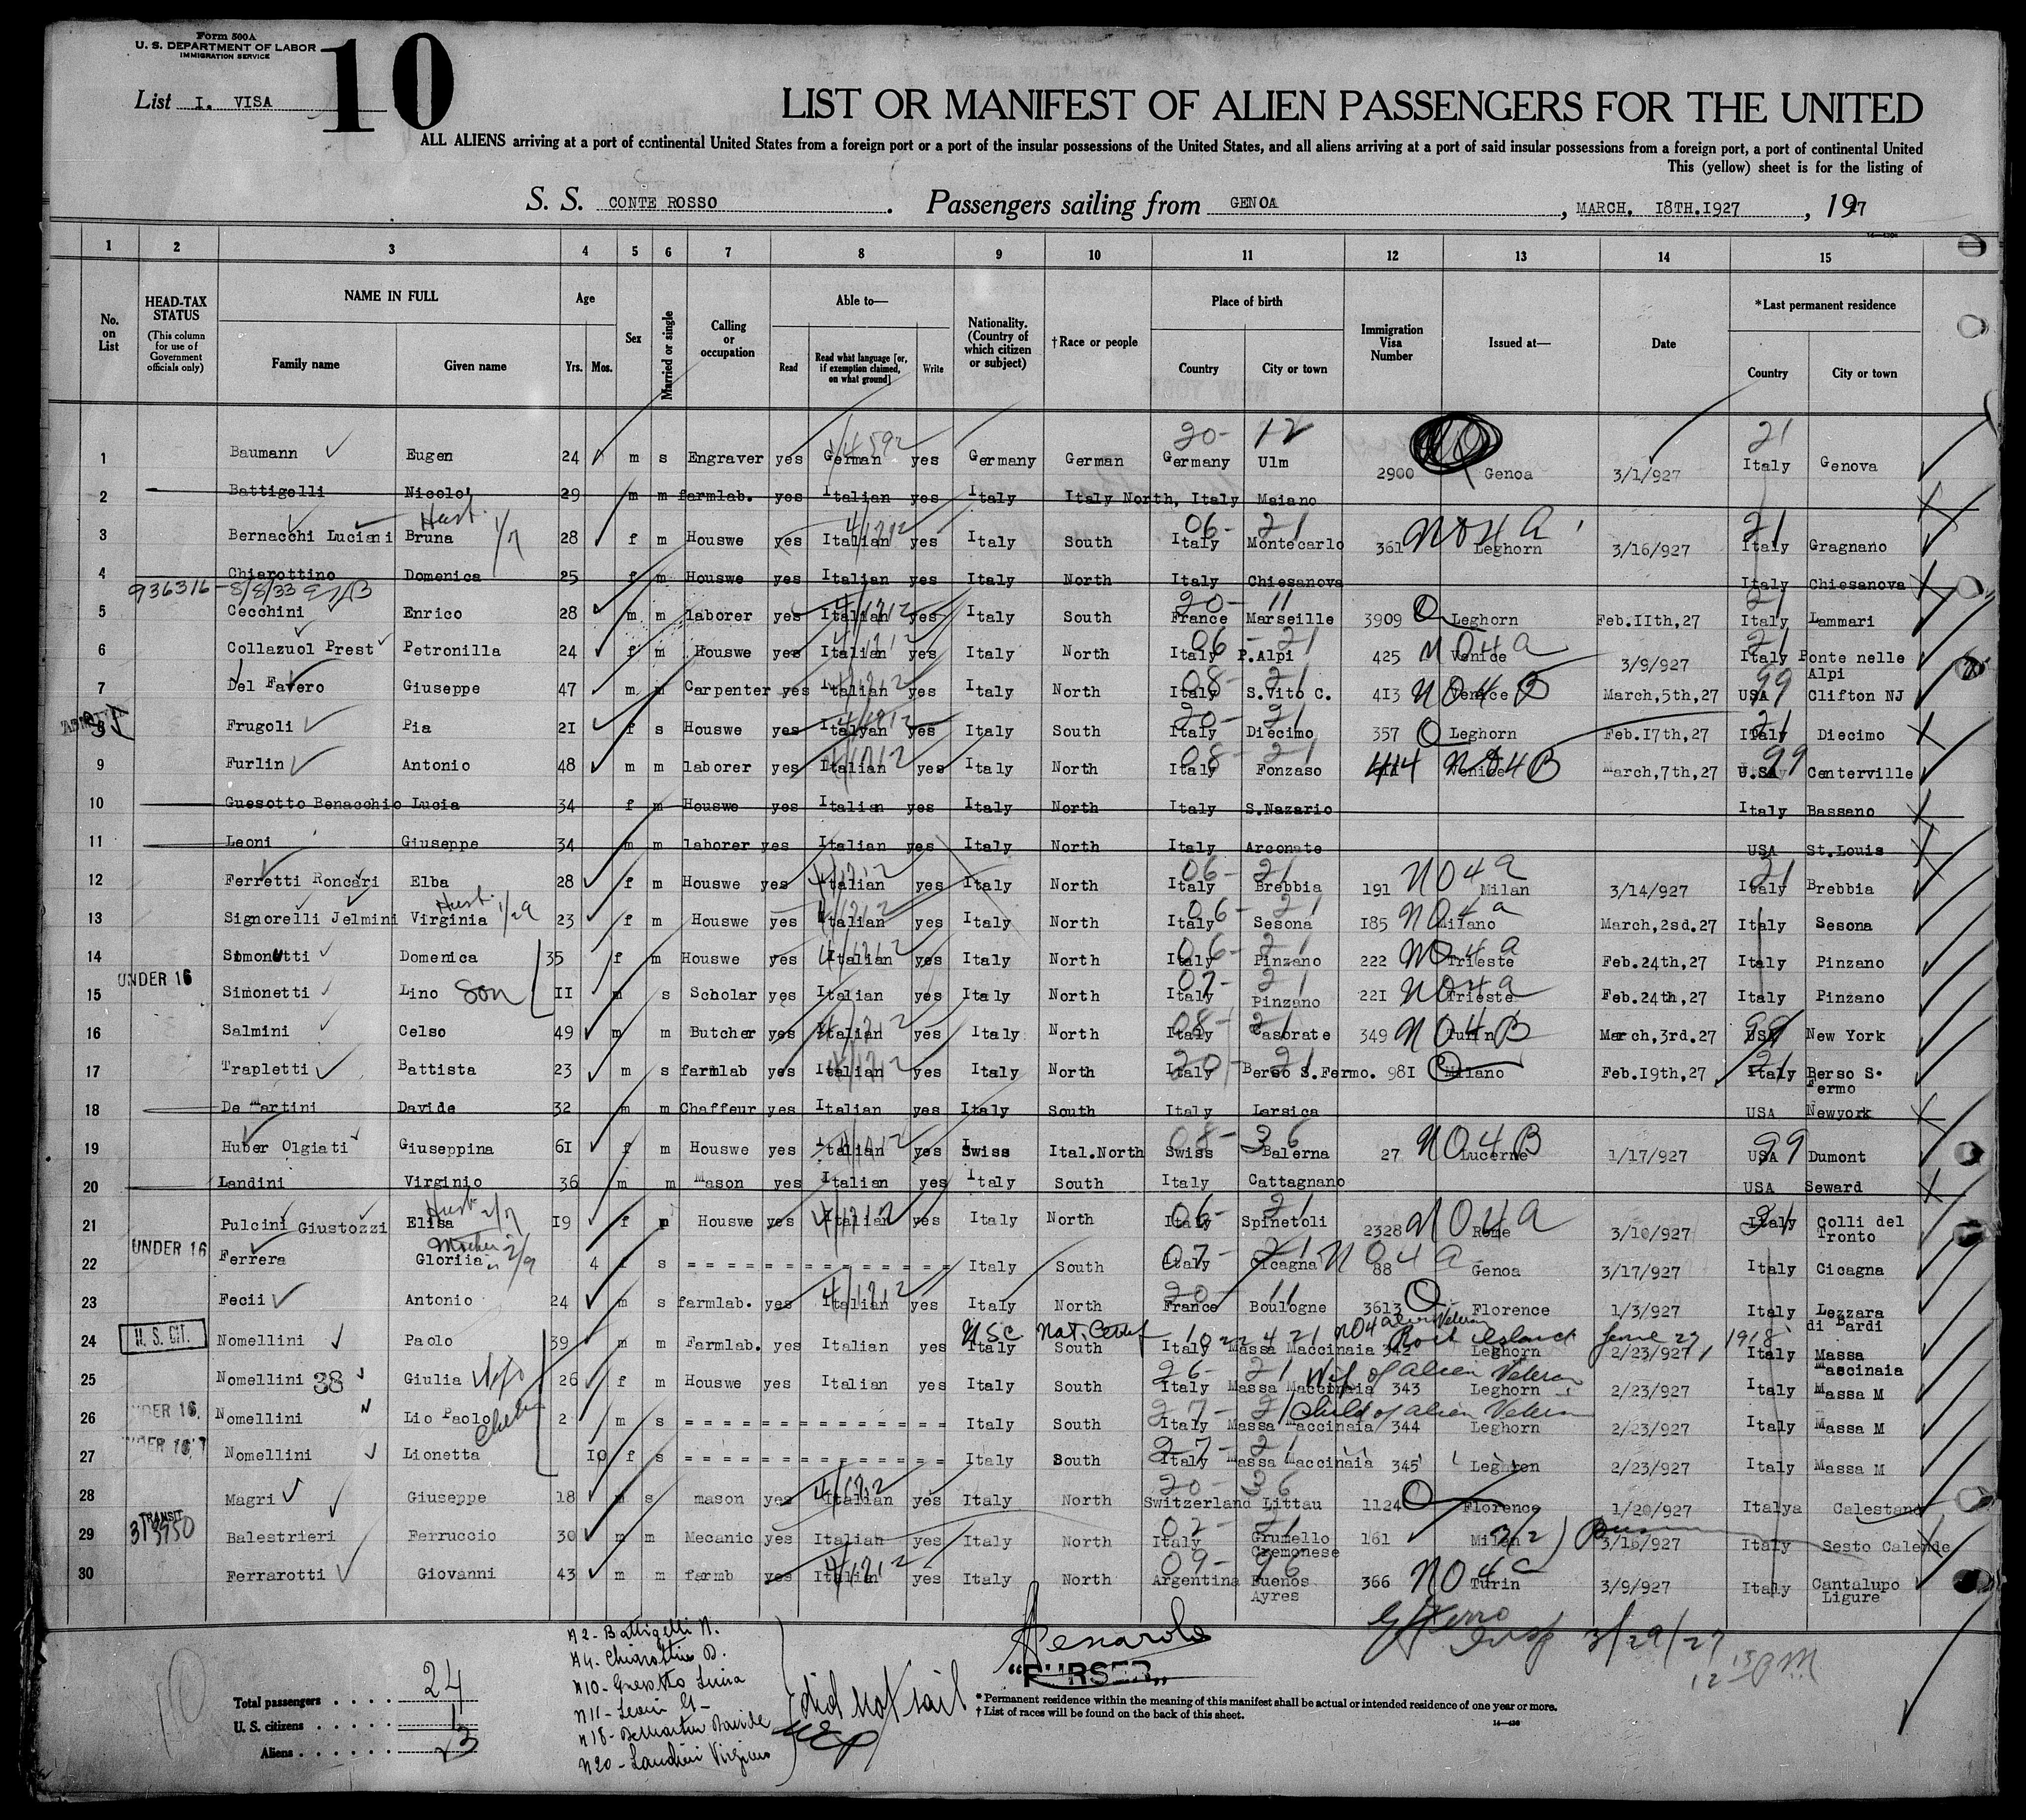 Form 500A
U. S. DEPARTMENT OF LABOR
IMMIGRATION SERVICE
10
List I. VISA
LIST OR MANIFEST OF ALIEN PASSENGERS FOR THE UNITED
ALL ALIENS arriving at a port of continental United States from a foreign port or a port of the insular possessions of the United States, and all aliens arriving at a port of said insular possessions from a foreign port, a port of continental United
This (yellow) sheet is for the listing of
S. S. CONTE ROSSO. Passengers sailing from GENOA, MARCH. 18TH.1927, 1927
1 2 3 4 5 6 7 8 9 10 11 12 13 14 15
No. on List HEAD-TAX STATUS (This column for use of Government officials only) NAME IN FULL Family name Given name Age Yrs. Mos. Sex Married or single Calling or occupation Able to— Read Read what language [or, if exemption claimed, on what ground] Write Nationality. (Country of which citizen or subject) †Race or people Place of birth Country City or town Immigration Visa Number Issued at— Date *Last permanent residence Country City or town
20- 12 21
1 Baumann Eugen 24 m s Engraver yes German yes Germany German Germany Ulm 2900 Genoa 3/1/927 Italy Genova
2 Battigelli Nicolo' 29 m m farmlab. yes Italian yes Italy Italy North, Italy Maiano
Hust. 1/7 06- 21 NO4A 21
3 Bernacchi Luciani Bruna 28 f m Houswe yes Italian yes Italy South Italy Montecarlo 361 Leghorn 3/16/927 Italy Gragnano
4 Chiarottino Domenica 25 f m Houswe yes Italian yes Italy North Italy Chiesanova Italy Chiesanova
936316-8/8/33 20- 11 21
5 Cecchini Enrico 28 m m laborer yes Italian yes Italy South France Marseille 3909 Leghorn Feb.IIth,27 Italy Lammari
06- 21 NO4a 21
6 Collazuol Prest Petronilla 24 f m Houswe yes Italian yes Italy North Italy P.Alpi 425 Venice 3/9/927 Italy Ponte nelle Alpi
08- 21 NO4B 99
7 Del Favero Giuseppe 47 m m Carpenter yes Italian yes Italy North Italy S.Vito C. 413 Venice March,5th,27 USA Clifton NJ
20- 21 21
8 Frugoli Pia 2I f s Houswe yes Italyan yes Italy South Italy Diecimo 357 Leghorn Feb.I7th,27 Italy Diecimo
08- 21 NO4B 99
9 Furlin Antonio 48 m m laborer yes Italian yes Italy North Italy Fonzaso 414 Venice March,7th,27 U.SA Centerville
10 Guesotto Benacchio Lucia 34 f m Houswe yes Italian yes Italy North Italy S.Nazario Italy Bassano
11 Leoni Giuseppe 34 m m laborer yes Italian yes Italy North Italy Arconate USA St.Louis
06- 21 NO4a 21
12 Ferretti Roncari Elba 28 f m Houswe yes Italian yes Italy North Italy Brebbia 191 Milan 3/14/927 Italy Brebbia
Hust. 1/29 06- 21 NO4a
13 Signorelli Jelmini Virginia 23 f m Houswe yes Italian yes Italy North Italy Sesona I85 Milano March,2sd.27 Italy Sesona
06- 21 NO4a
14 Simonetti Domenica 35 f m Houswe yes Italian yes Italy North Italy Pinzano 222 Trieste Feb.24th,27 Italy Pinzano
UNDER 16 07- 21 NO4a
15 Simonetti Lino Son II m s Scholar yes Italian yes Italy North Italy Pinzano 22I Trieste Feb.24th,27 Italy Pinzano
08- 21 NO4B 99
16 Salmini Celso 49 m m Butcher yes Italian yes Italy North Italy Casorate 349 Turin March,3rd.27 USA New York
20- 21 21
17 Trapletti Battista 23 m s farmlab yes Italian yes Italy North Italy Berso S.Fermo. 98I Milano Feb.I9th,27 Italy Berso S. Fermo
18 De Martini Davide 32 m m Chaffeur yes Italian yes Italy South Italy Larsica USA Newyork
08- 36 NO4B 99
19 Huber Olgiati Giuseppina 6I f m Houswe yes Italian yes Swiss Ital.North Swiss Balerna 27 Lucerne 1/17/927 USA Dumont
20 Landini Virginio 36 m m Mason yes Italian yes Italy South Italy Cattagnano USA Seward
Hust. 2/7 06- 21 NO4A 21
21 Pulcini Giustozzi Elisa I9 f m Houswe yes Italian yes Italy North Italy Spinetoli 2328 Rome 3/10/927 Italy Colli del Tronto
UNDER 16 Mother 2/9 07- 21 NO4a
22 Ferrera Gloriia 4 f s Italy South Italy Cicagna 88 Genoa 3/17/927 Italy Cicagna
20- 11
23 Fecii Antonio 24 m s farmlab. yes Italian yes Italy North France Boulogne 3613 Florence 1/3/927 Italy Lezzara di Bardi
U. S. CIT. USC Nat. Certif 1022421 NO4 alien Veteran Rock Island June 27 1918
24 Nomellini Paolo 39 m m Farmlab. yes Italian yes Italy South Italy Massa Maccinaia 342 Leghorn 2/23/927 Italy Massa Mascinaia
26- 21 Wife of Alien Veteran
25 Nomellini 38 Giulia Wife 26 f m Houswe yes Italian yes Italy South Italy Massa Maccinaia 343 Leghorn 2/23/927 Italy Massa M
UNDER 16. 27- 21 Child of alien Veteran
26 Nomellini Lio Paolo 2 m s Italy South Italy Massa Maccinaia 344 Leghorn 2/23/927 Italy Massa M
27- 21
27 Nomellini Lionetta 10 f s Italy South Italy Massa Maccinaia 345 Leghorn 2/23/927 Italy Massa M
20- 36
28 Magri Giuseppe 18 m s mason yes Italian yes Italy North Switzerland Littau 1124 Florence 1/20/927 Italya Calestano
TRANSIT 02- 21
29 Balestrieri Ferruccio 30 m m Mecanic yes Italian yes Italy North Italy Grumello Cremonese 161 Milan 3/16/927 Italy Sesto Calende
09- 96 NO4C
30 Ferrarotti Giovanni 43 m m farmb yes Italian yes Italy North Argentina Buenos Ayres 366 Turin 3/9/927 Italy Cantalupo Ligure
3/29/27
N2- Battigelli N.
N4- Chiarottino D.
N10- Guesotto Lucia
N11- Leoni G-
N18- DeMartini Davide
N20- Landini Virginio
did not sail
"PURSER"
Total passengers . . . . 24
U. S. citizens . . . . . 1
Aliens . . . . . . 23
* Permanent residence within the meaning of this manifest shall be actual or intended residence of one year or more.
† List of races will be found on the back of this sheet.